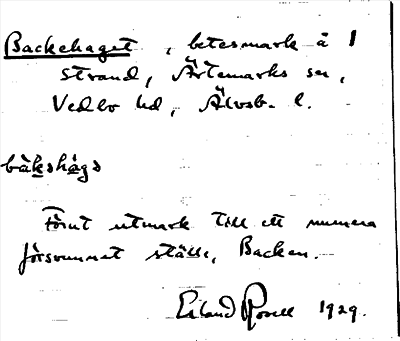 Backehaget, betesmark å 1
Strand, Ärtemarks sn,
Vedbo hd, Älvsb. l.
bàkshágs
Förut utmark till ett numera
försvunnet ställe, Backen.
Erland Rosell 1929.